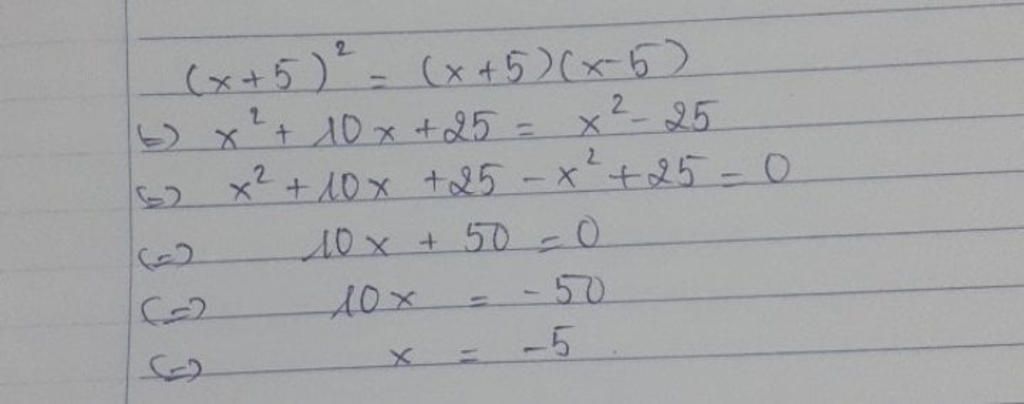 (x+5)² = (x+5)(x-5)
<=> x² + 10x + 25 = x² - 25
<=> x² + 10x + 25 - x² + 25 = 0
<=> 10x + 50 = 0
<=> 10x = -50
<=> x = -5